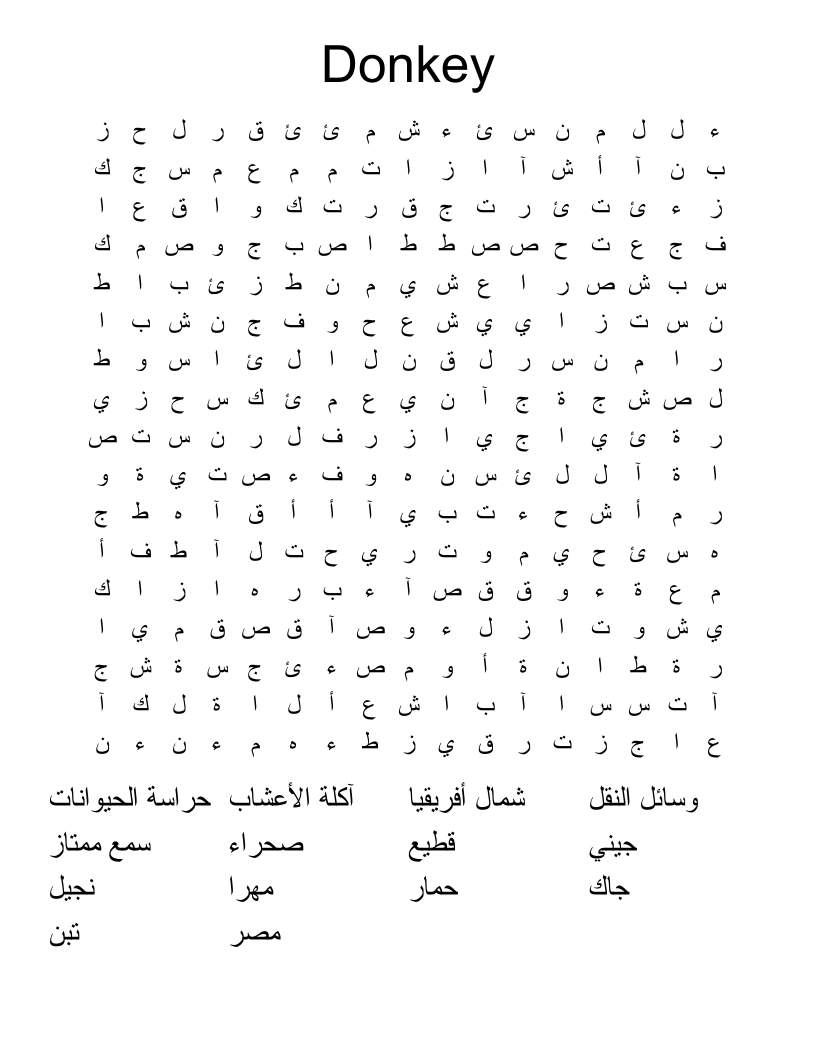 Donkey
ء ل ل م ن س ئ ء ش م ئ ئ ق ر ل ح ز
ب ن آ أ ش آ ا ز ا ت م م ع م س ج ك
ز ء ئ ت ئ ر ت ج ق ر ت ك و ا ق ع ا
ف ج ع ت ح ص ص ط ط ا ص ب ج و ص م ك
س ب ش ص ر ا ع ش ي م ن ط ز ئ ب ا ط
ن س ت ز ا ي ي ش ع ح و ف ج ن ش ب ا
ر ا م ن س ر ل ق ن ل ا ل ئ ا س و ط
ل ص ش ج ة ج آ ن ي ع م ئ ك س ح ز ي
ر ة ئ ي ا ج ي ا ز ر ف ل ر ن س ت ص
ا ة آ ل ل ئ س ن ه و ف ء ص ت ي ة و
ر م أ ش ح ء ت ب ي آ أ أ ق آ ه ط ج
ه س ئ ح ي م و ت ر ي ح ت ل آ ط ف أ
م ع ة ء و ق ق ص آ ء ب ر ه ا ز ا ك
ي ش و ت ا ز ل ء و ص آ ق ص ق م ي ا
ر ة ط ا ن ة أ و م ص ء ئ ج س ة ش ج
آ ت س س ا آ ب ا ش ع أ ل ا ة ل ك آ
ع ا ج ز ت ر ق ي ز ط ء ه م ء ن ء ن
وسائل النقل شمال أفريقيا آكلة الأعشاب حراسة الحيوانات
جيني قطيع صحراء سمع ممتاز
جاك حمار مهرا نجيل
مصر تبن